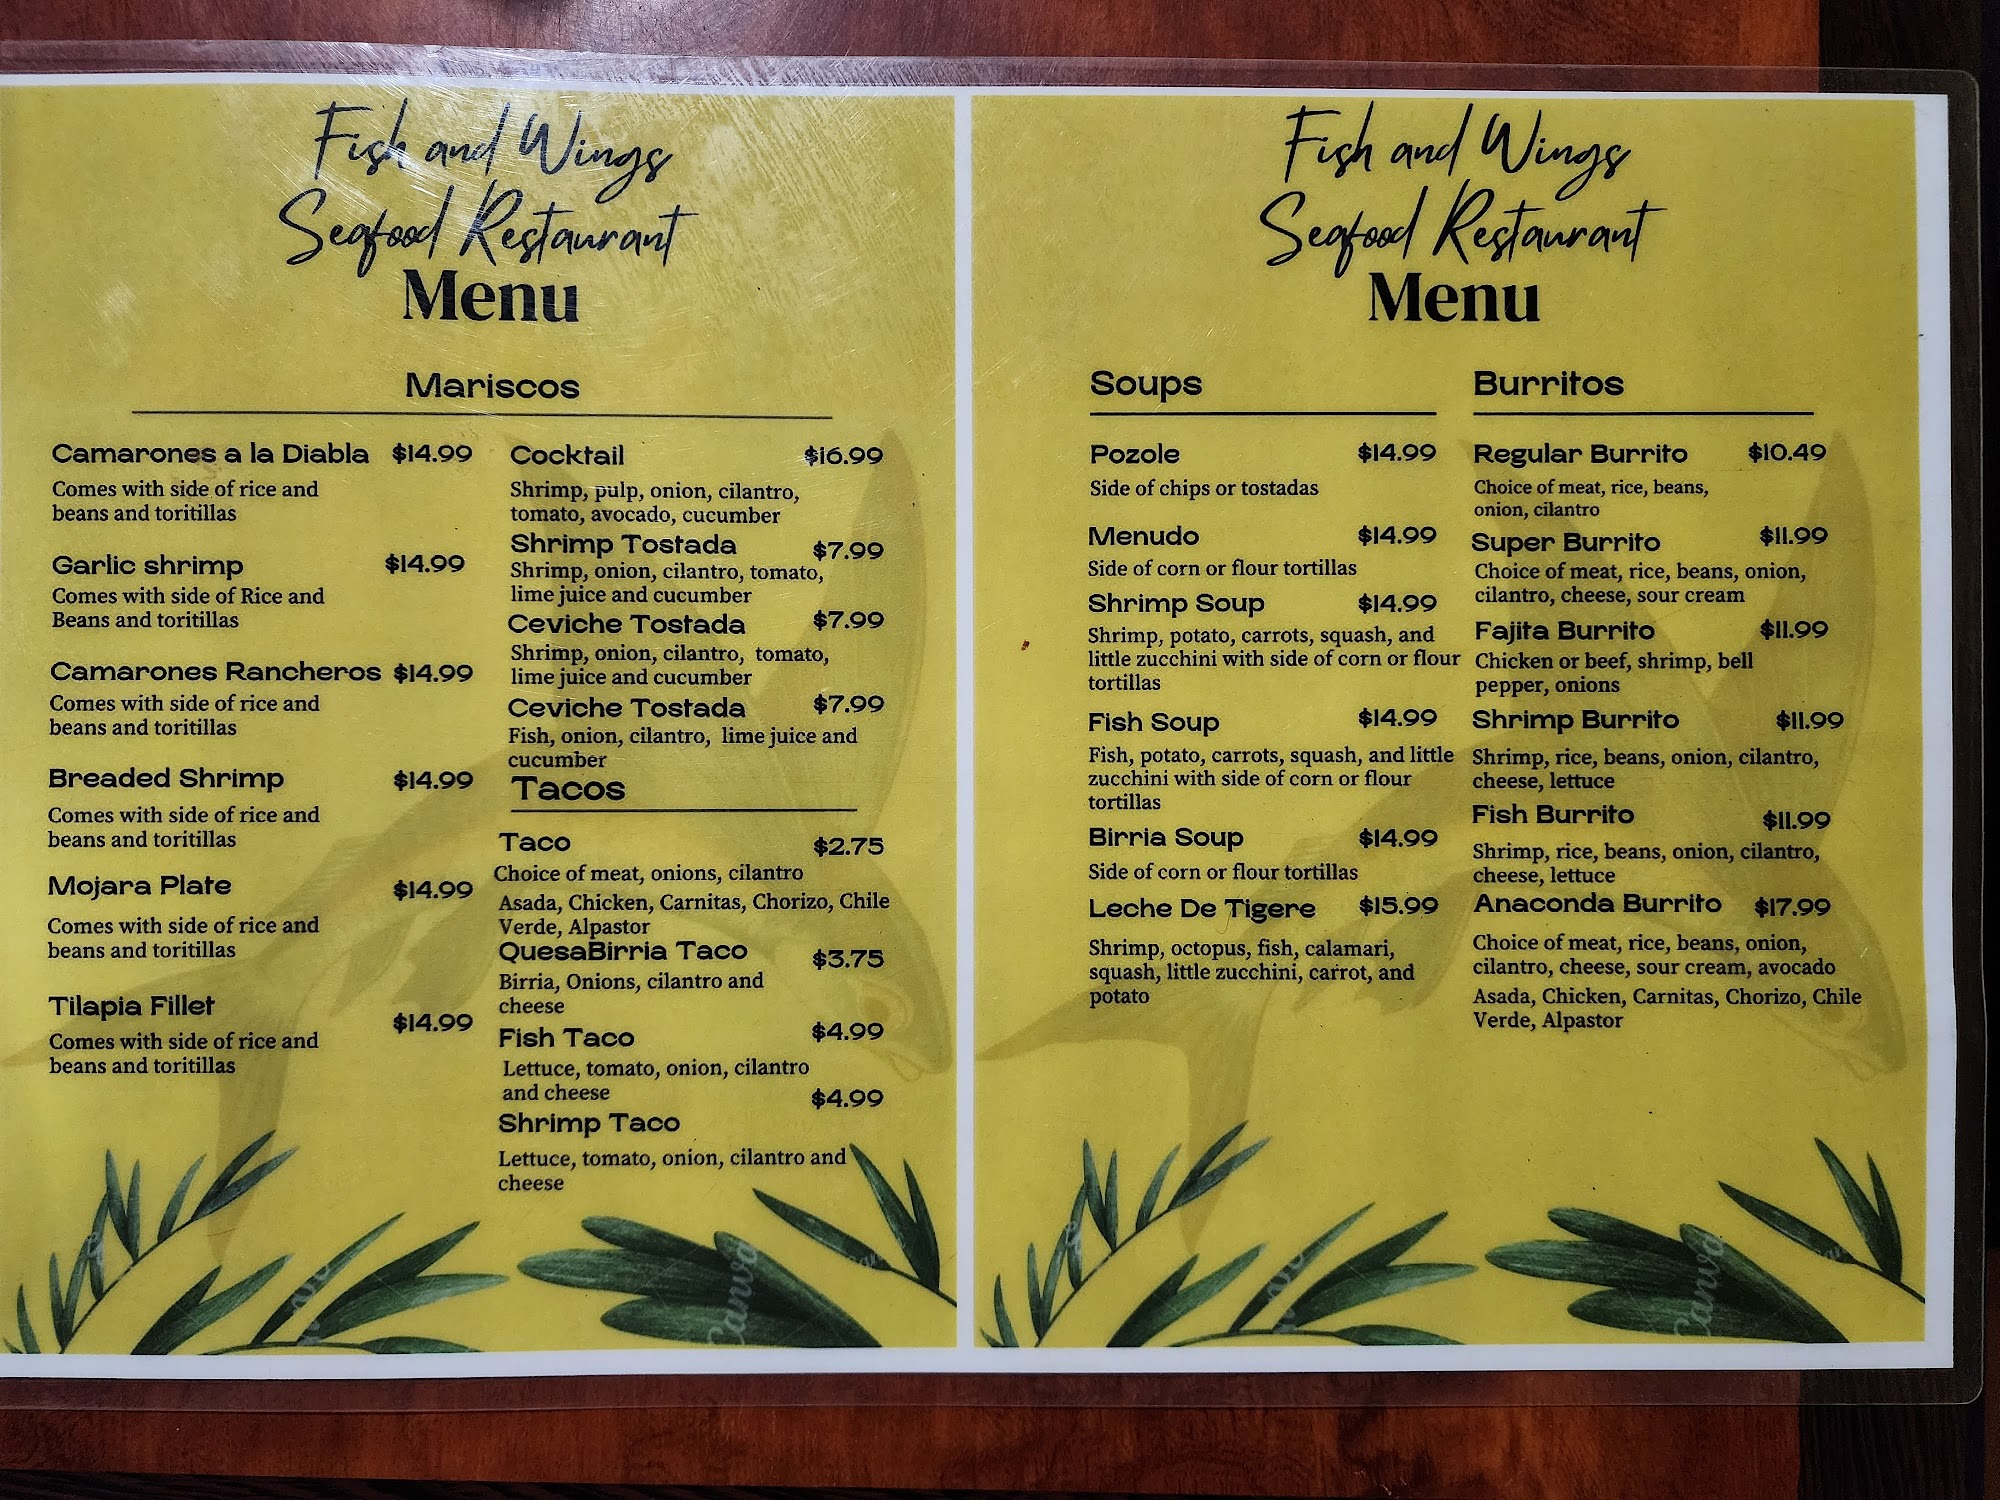 Fish and Wings
Seafood Restaurant
Menu
Mariscos
Camarones a la Diabla $14.99
Comes with side of rice and
beans and toritillas
Garlic shrimp $14.99
Comes with side of Rice and
Beans and toritillas
Camarones Rancheros $14.99
Comes with side of rice and
beans and toritillas
Breaded Shrimp $14.99
Comes with side of rice and
beans and toritillas
Mojara Plate $14.99
Comes with side of rice and
beans and toritillas
Tilapia Fillet $14.99
Comes with side of rice and
beans and toritillas
Cocktail $16.99
Shrimp, pulp, onion, cilantro,
tomato, avocado, cucumber
Shrimp Tostada $7.99
Shrimp, onion, cilantro, tomato,
lime juice and cucumber
Ceviche Tostada $7.99
Shrimp, onion, cilantro, tomato,
lime juice and cucumber
Ceviche Tostada $7.99
Fish, onion, cilantro, lime juice and
cucumber
Tacos
Taco $2.75
Choice of meat, onions, cilantro
Asada, Chicken, Carnitas, Chorizo, Chile
Verde, Alpastor
QuesaBirria Taco $3.75
Birria, Onions, cilantro and
cheese
Fish Taco $4.99
Lettuce, tomato, onion, cilantro
and cheese
Shrimp Taco $4.99
Lettuce, tomato, onion, cilantro and
cheese
Canva
Fish and Wings
Seafood Restaurant
Menu
Soups
Pozole $14.99
Side of chips or tostadas
Menudo $14.99
Side of corn or flour tortillas
Shrimp Soup $14.99
Shrimp, potato, carrots, squash, and
little zucchini with side of corn or flour
tortillas
Fish Soup $14.99
Fish, potato, carrots, squash, and little
zucchini with side of corn or flour
tortillas
Birria Soup $14.99
Side of corn or flour tortillas
Leche De Tigere $15.99
Shrimp, octopus, fish, calamari,
squash, little zucchini, carrot, and
potato
Burritos
Regular Burrito $10.49
Choice of meat, rice, beans,
onion, cilantro
Super Burrito $11.99
Choice of meat, rice, beans, onion,
cilantro, cheese, sour cream
Fajita Burrito $11.99
Chicken or beef, shrimp, bell
pepper, onions
Shrimp Burrito $11.99
Shrimp, rice, beans, onion, cilantro,
cheese, lettuce
Fish Burrito $11.99
Shrimp, rice, beans, onion, cilantro,
cheese, lettuce
Anaconda Burrito $17.99
Choice of meat, rice, beans, onion,
cilantro, cheese, sour cream, avocado
Asada, Chicken, Carnitas, Chorizo, Chile
Verde, Alpastor
Canva